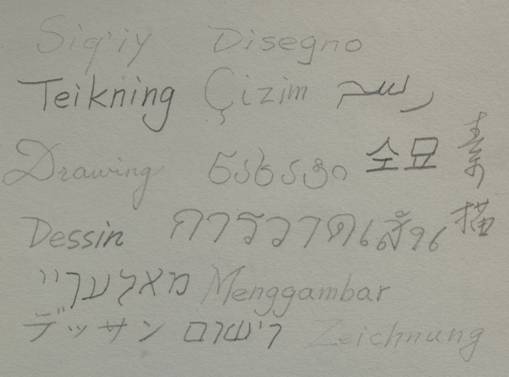 Siq'iy Disegno
Teikning Çizim رسم
Drawing ნახატი 소묘 素描
Dessin การวาดเส้น
מאלעריי Menggambar
デッサン רישום Zeichnung